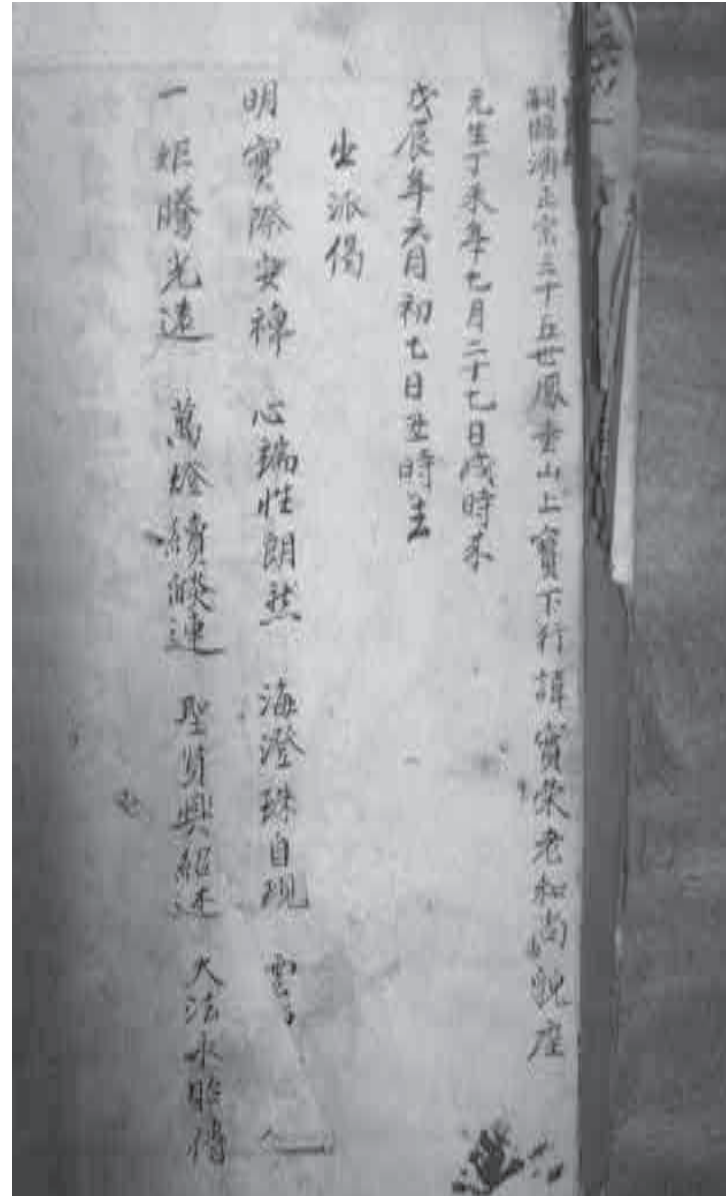 嗣臨濟正宗三十五世鳳
山上寶下行諱寶榮老和尚貌座
元生丁未年七月二十七日戌時
戊辰年六月初七日丑時
出派偈
明實際安禪 心瑞性朗然 海澄珠自現 雲
一炬騰光遠 萬燈續燄連 聖賢興紹述 大法永昭傳